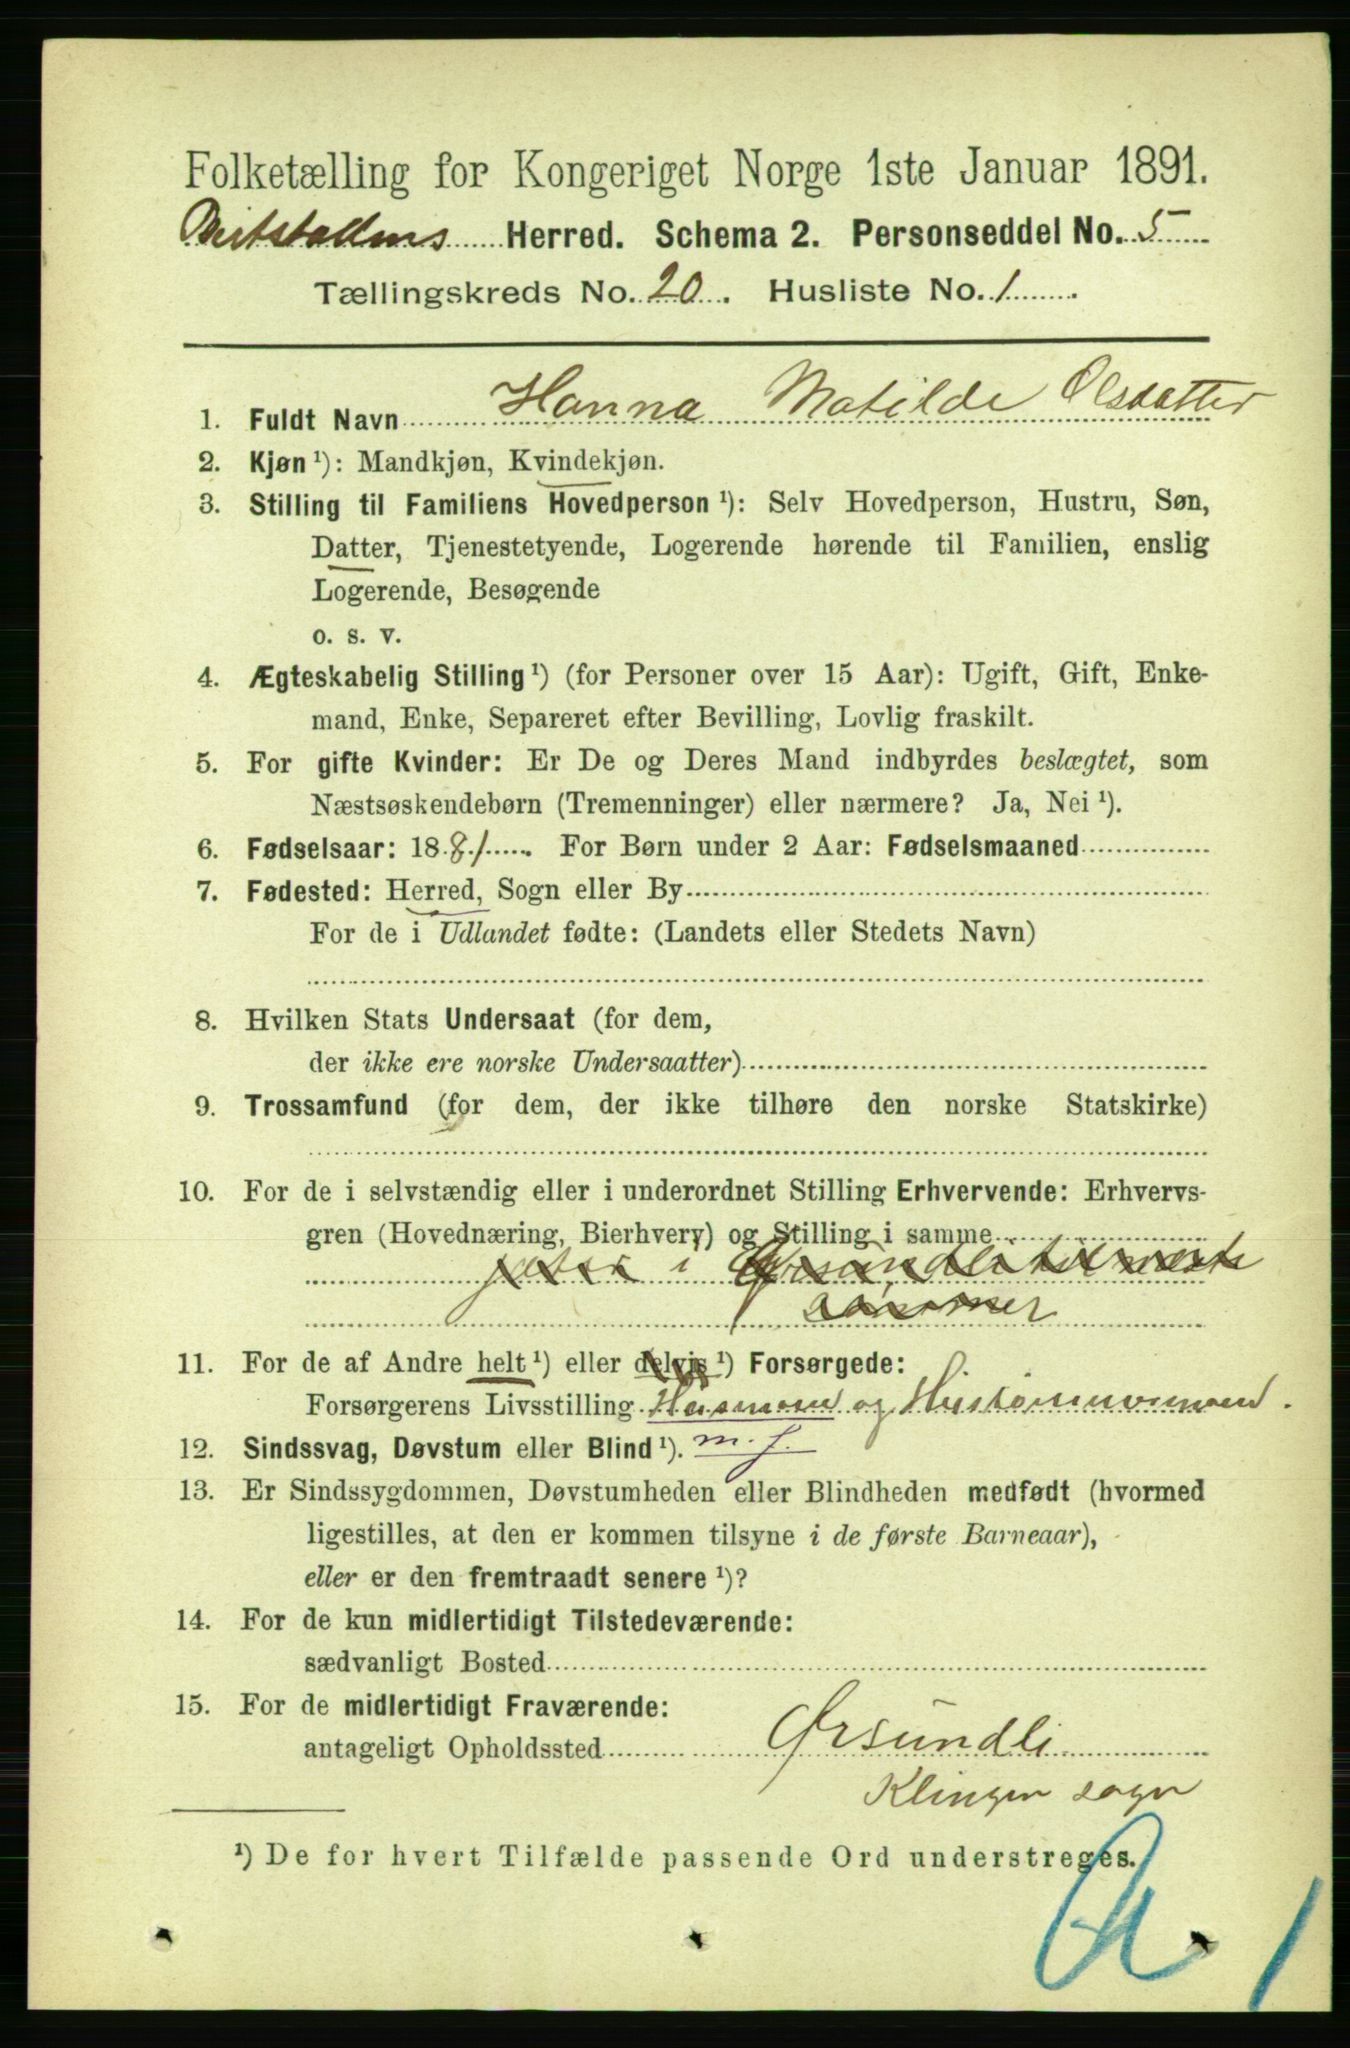 Folketælling for Kongeriget Norge 1ste Januar 1891.
Herred. Schema 2. Personseddel No. 5
Tællingskreds No. 20. Husliste No. 1
1. Fuldt Navn Hanna Matilde Olsdatter
2. Kjøn ¹): Mandkjøn, Kvindekjøn.
3. Stilling til Familiens Hovedperson ¹): Selv Hovedperson, Hustru, Søn,
Datter, Tjenestetyende, Logerende hørende til Familien, enslig
Logerende, Besøgende
o. s. v.
4. Ægteskabelig Stilling ¹) (for Personer over 15 Aar): Ugift, Gift, Enke-
mand, Enke, Separeret efter Bevilling, Lovlig fraskilt.
5. For gifte Kvinder: Er De og Deres Mand indbyrdes beslægtet, som
Næstsøskendebørn (Tremenninger) eller nærmere? Ja, Nei ¹).
6. Fødselsaar: 1881. For Børn under 2 Aar: Fødselsmaaned
7. Fødested: Herred, Sogn eller By
For de i Udlandet fødte: (Landets eller Stedets Navn)
8. Hvilken Stats Undersaat (for dem,
der ikke ere norske Undersaatter)
9. Trossamfund (for dem, der ikke tilhøre den norske Statskirke)
10. For de i selvstændig eller i underordnet Stilling Erhvervende: Erhvervs-
gren (Hovednæring, Bierhverv) og Stilling i samme
i Ørsundli til næste
sommer
11. For de af Andre helt ¹) eller delvis ¹) Forsørgede:
Forsørgerens Livsstilling Husmand og
12. Sindssvag, Døvstum eller Blind ¹). m. f.
13. Er Sindssygdommen, Døvstumheden eller Blindheden medfødt (hvormed
ligestilles, at den er kommen tilsyne i de første Barneaar),
eller er den fremtraadt senere ¹)?
14. For de kun midlertidigt Tilstedeværende:
sædvanligt Bosted
15. For de midlertidigt Fraværende:
antageligt Opholdssted Ørsundli
Klingen sogn
¹) De for hvert Tilfælde passende Ord understreges.